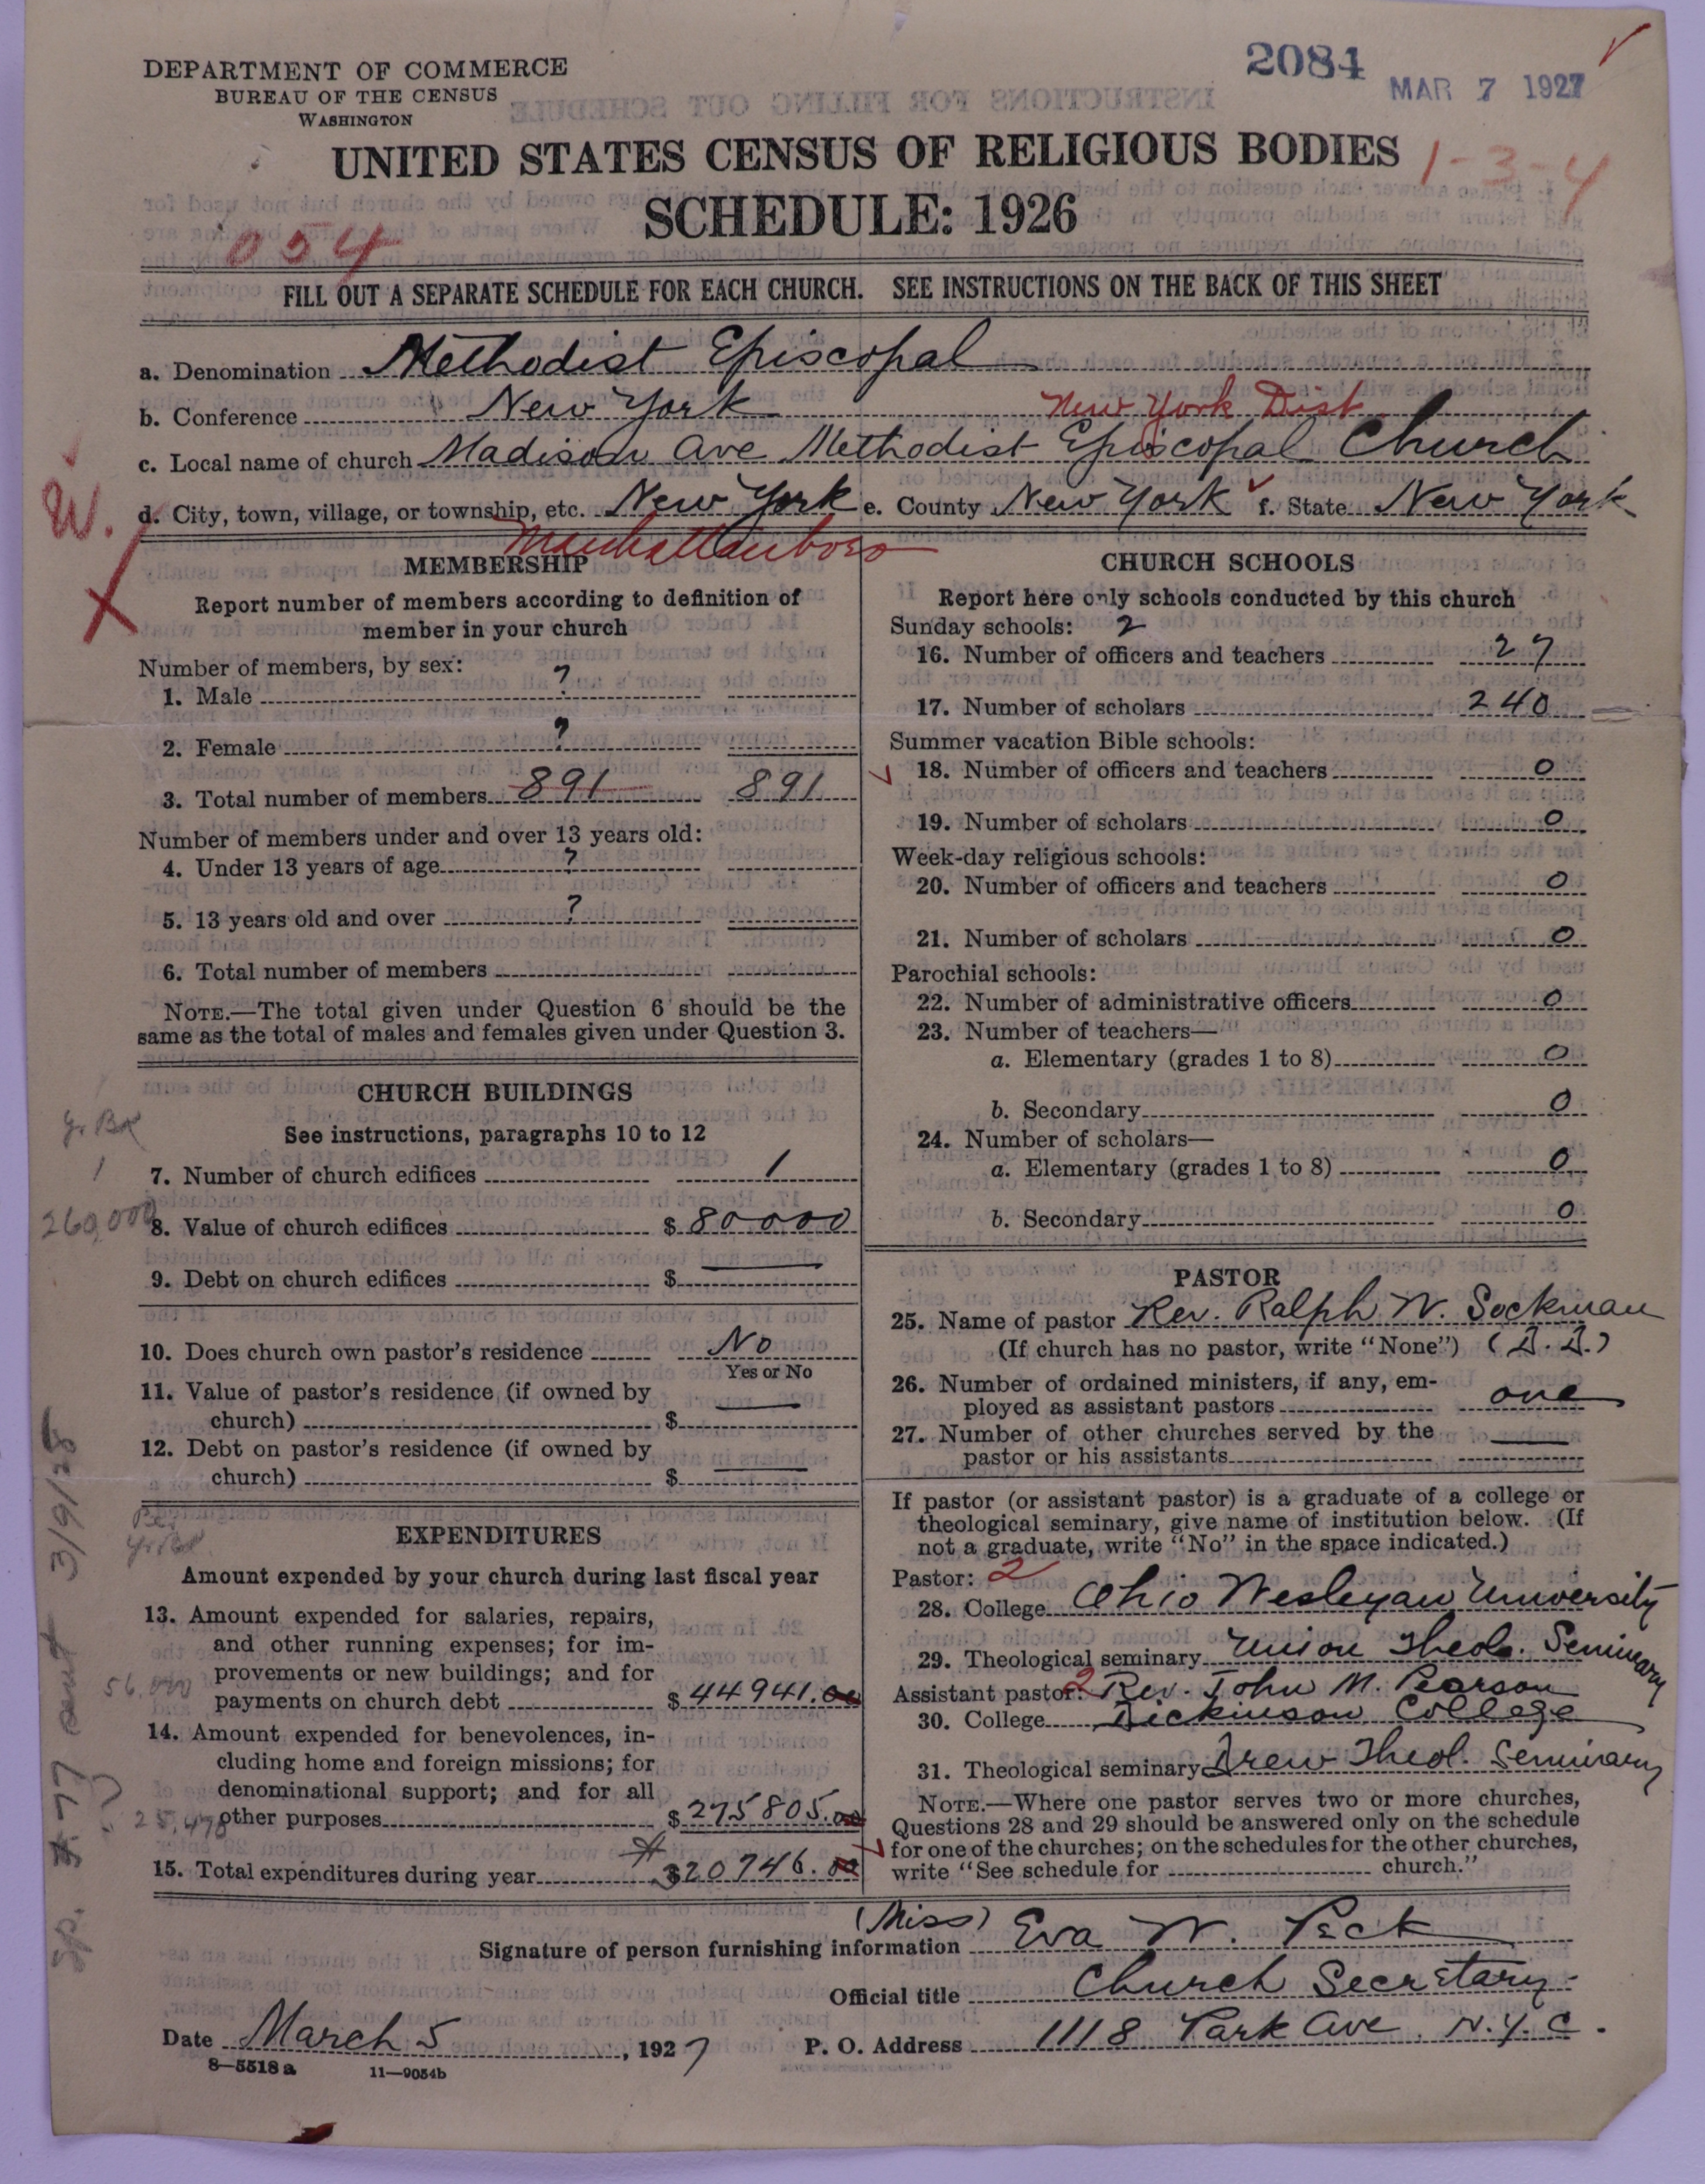 DEPARTMENT OF COMMERCE
BUREAU OF THE CENSUS
WASHINGTON
2084
MAR 7 1927
UNITED STATES CENSUS OF RELIGIOUS BODIES
1-3-4
SCHEDULE: 1926
054
FILL OUT A SEPARATE SCHEDULE FOR EACH CHURCH. SEE INSTRUCTIONS ON THE BACK OF THIS SHEET
a. Denomination Methodist Episcopal
b. Conference New York New York Dist
c. Local name of church Madison Ave Methodist Episcopal Church
W.
d. City, town, village, or township, etc. New York e. County New York f. State New York
Manhattan boro
X
MEMBERSHIP
Report number of members according to definition of
member in your church
Number of members, by sex:
1. Male ?
2. Female ?
3. Total number of members 891 891
Number of members under and over 13 years old:
4. Under 13 years of age ?
5. 13 years old and over ?
6. Total number of members
NOTE.—The total given under Question 6 should be the
same as the total of males and females given under Question 3.
CHURCH BUILDINGS
See instructions, paragraphs 10 to 12
Yr. Bk
7. Number of church edifices 1
1
8. Value of church edifices $ 80000
260,000
9. Debt on church edifices $ —
10. Does church own pastor's residence No
Yes or No
11. Value of pastor's residence (if owned by
church) $ —
12. Debt on pastor's residence (if owned by
church) $ —
Yr. Bk
EXPENDITURES
Amount expended by your church during last fiscal year
13. Amount expended for salaries, repairs,
and other running expenses; for im-
provements or new buildings; and for
payments on church debt $ 44941.00
56,000
14. Amount expended for benevolences, in-
cluding home and foreign missions; for
denominational support; and for all
other purposes $ 275805.00
25,498
15. Total expenditures during year $320746.00
3/9/28
CHURCH SCHOOLS
Report here only schools conducted by this church
Sunday schools: 2
16. Number of officers and teachers 27
17. Number of scholars 240
Summer vacation Bible schools:
18. Number of officers and teachers 0
19. Number of scholars 0
Week-day religious schools:
20. Number of officers and teachers 0
21. Number of scholars 0
Parochial schools:
22. Number of administrative officers 0
23. Number of teachers—
a. Elementary (grades 1 to 8) 0
b. Secondary 0
24. Number of scholars—
a. Elementary (grades 1 to 8) 0
b. Secondary 0
PASTOR
25. Name of pastor Rev. Ralph W. Sockman
(If church has no pastor, write "None") (D.D.)
26. Number of ordained ministers, if any, em-
ployed as assistant pastors one
27. Number of other churches served by the
pastor or his assistants —
If pastor (or assistant pastor) is a graduate of a college or
theological seminary, give name of institution below. (If
not a graduate, write "No" in the space indicated.)
Pastor: 2
28. College Ohio Wesleyan University
29. Theological seminary Union Theol. Seminary
Assistant pastor: 2 Rev. John M. Pearson
30. College Dickinson College
31. Theological seminary Drew Theol. Seminary
NOTE.—Where one pastor serves two or more churches,
Questions 28 and 29 should be answered only on the schedule
for one of the churches; on the schedules for the other churches,
write "See schedule for church."
(Miss)
Signature of person furnishing information Eva W. Peck
Official title Church Secretary
Date March 5, 1927
P. O. Address 1118 Park Ave. N.Y.C.
8—5518a 11—9054b